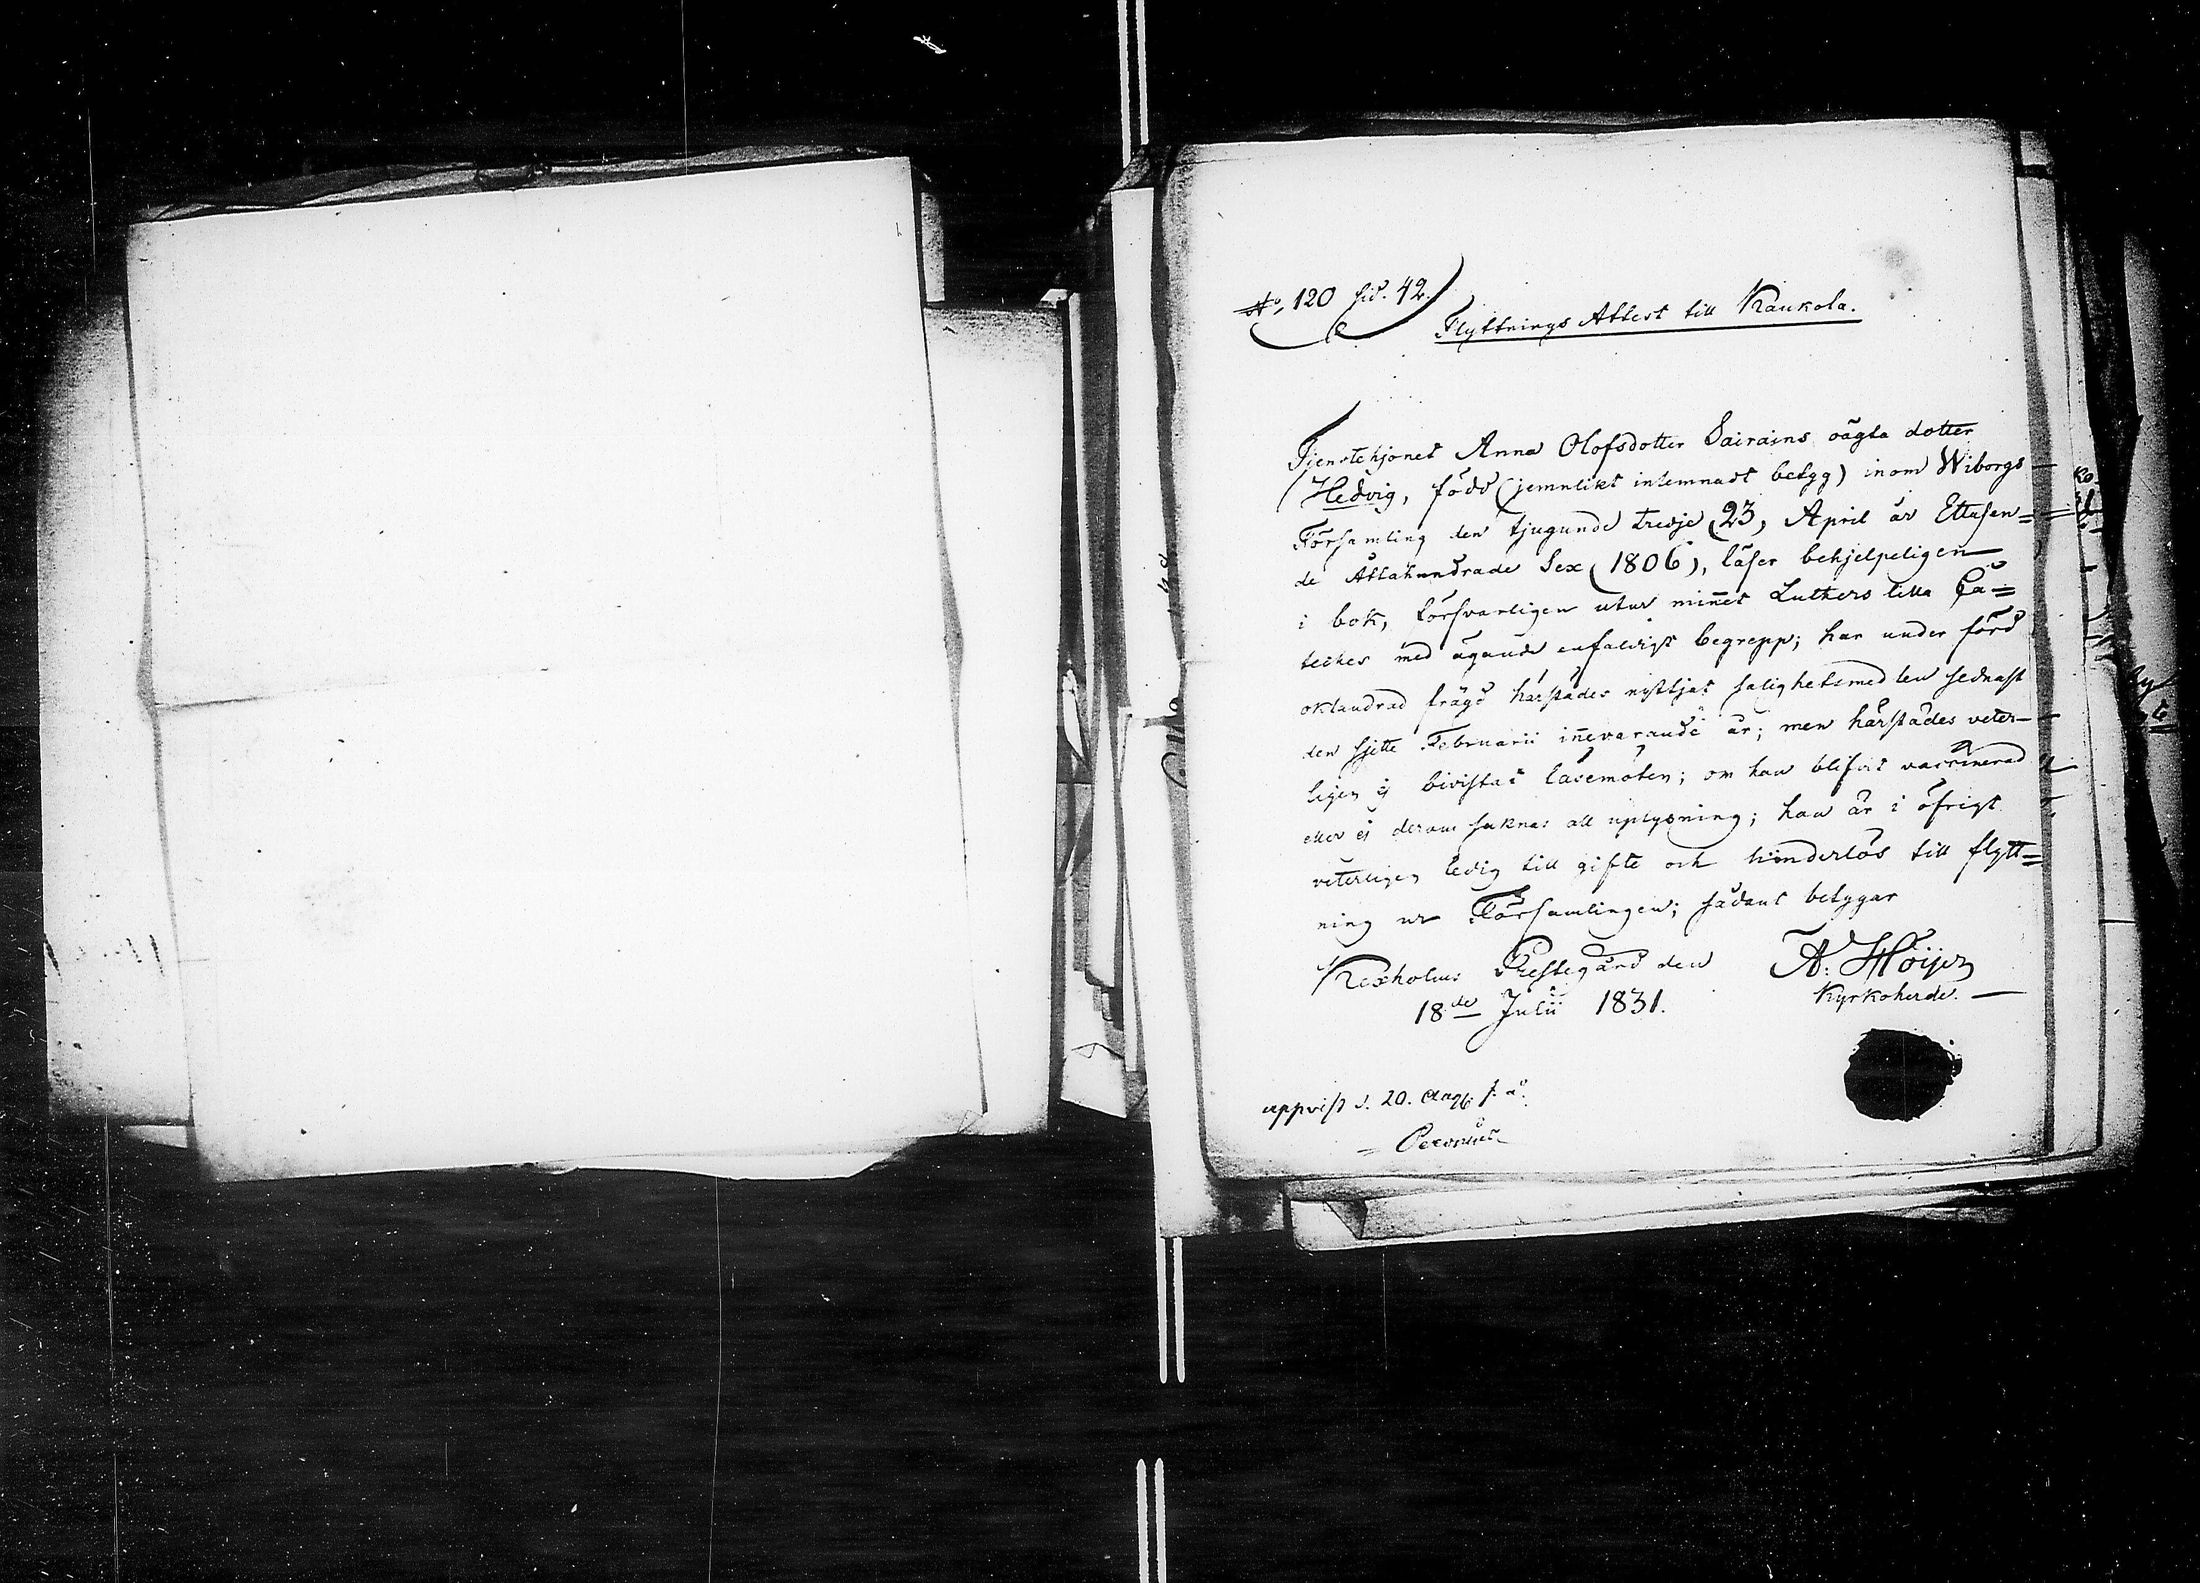 No. 120 sid. 42.
Flyttnings Attest till Kaukola.
Tjenstehjonet Anna Olofsdotter Sairains oägta dotter
Hedvig, född (jemnlikt inlemnadt betyg) inom Wiborgs
Församling den tjugunde tredje (23) April år Ettusen=
de Åttahundrade Sex (1806), läser behjelpeligen
i bok, försvarligen utur minnet Luthers lilla Ca=
teches med ägande enfaldigt begrepp; har under förd
oklandrad frägd härstädes nyttjat salighetsmedlen sednast
den sjette Februarii innevarande år; men härstädes veter-
ligen ej bivistat läsemöten; om hon blifvit vaccinerad
eller ej derom saknas all uplysning; hon är i öfrigt
veterligen ledig till gifte och hinderlös till flytt=
ning ur Församlingen; sådant betygar
Kexholms Prestegård den A: Höijer
18de Julii 1831. Kyrkoherde.
uppvist d. 20. Aug. s. å.